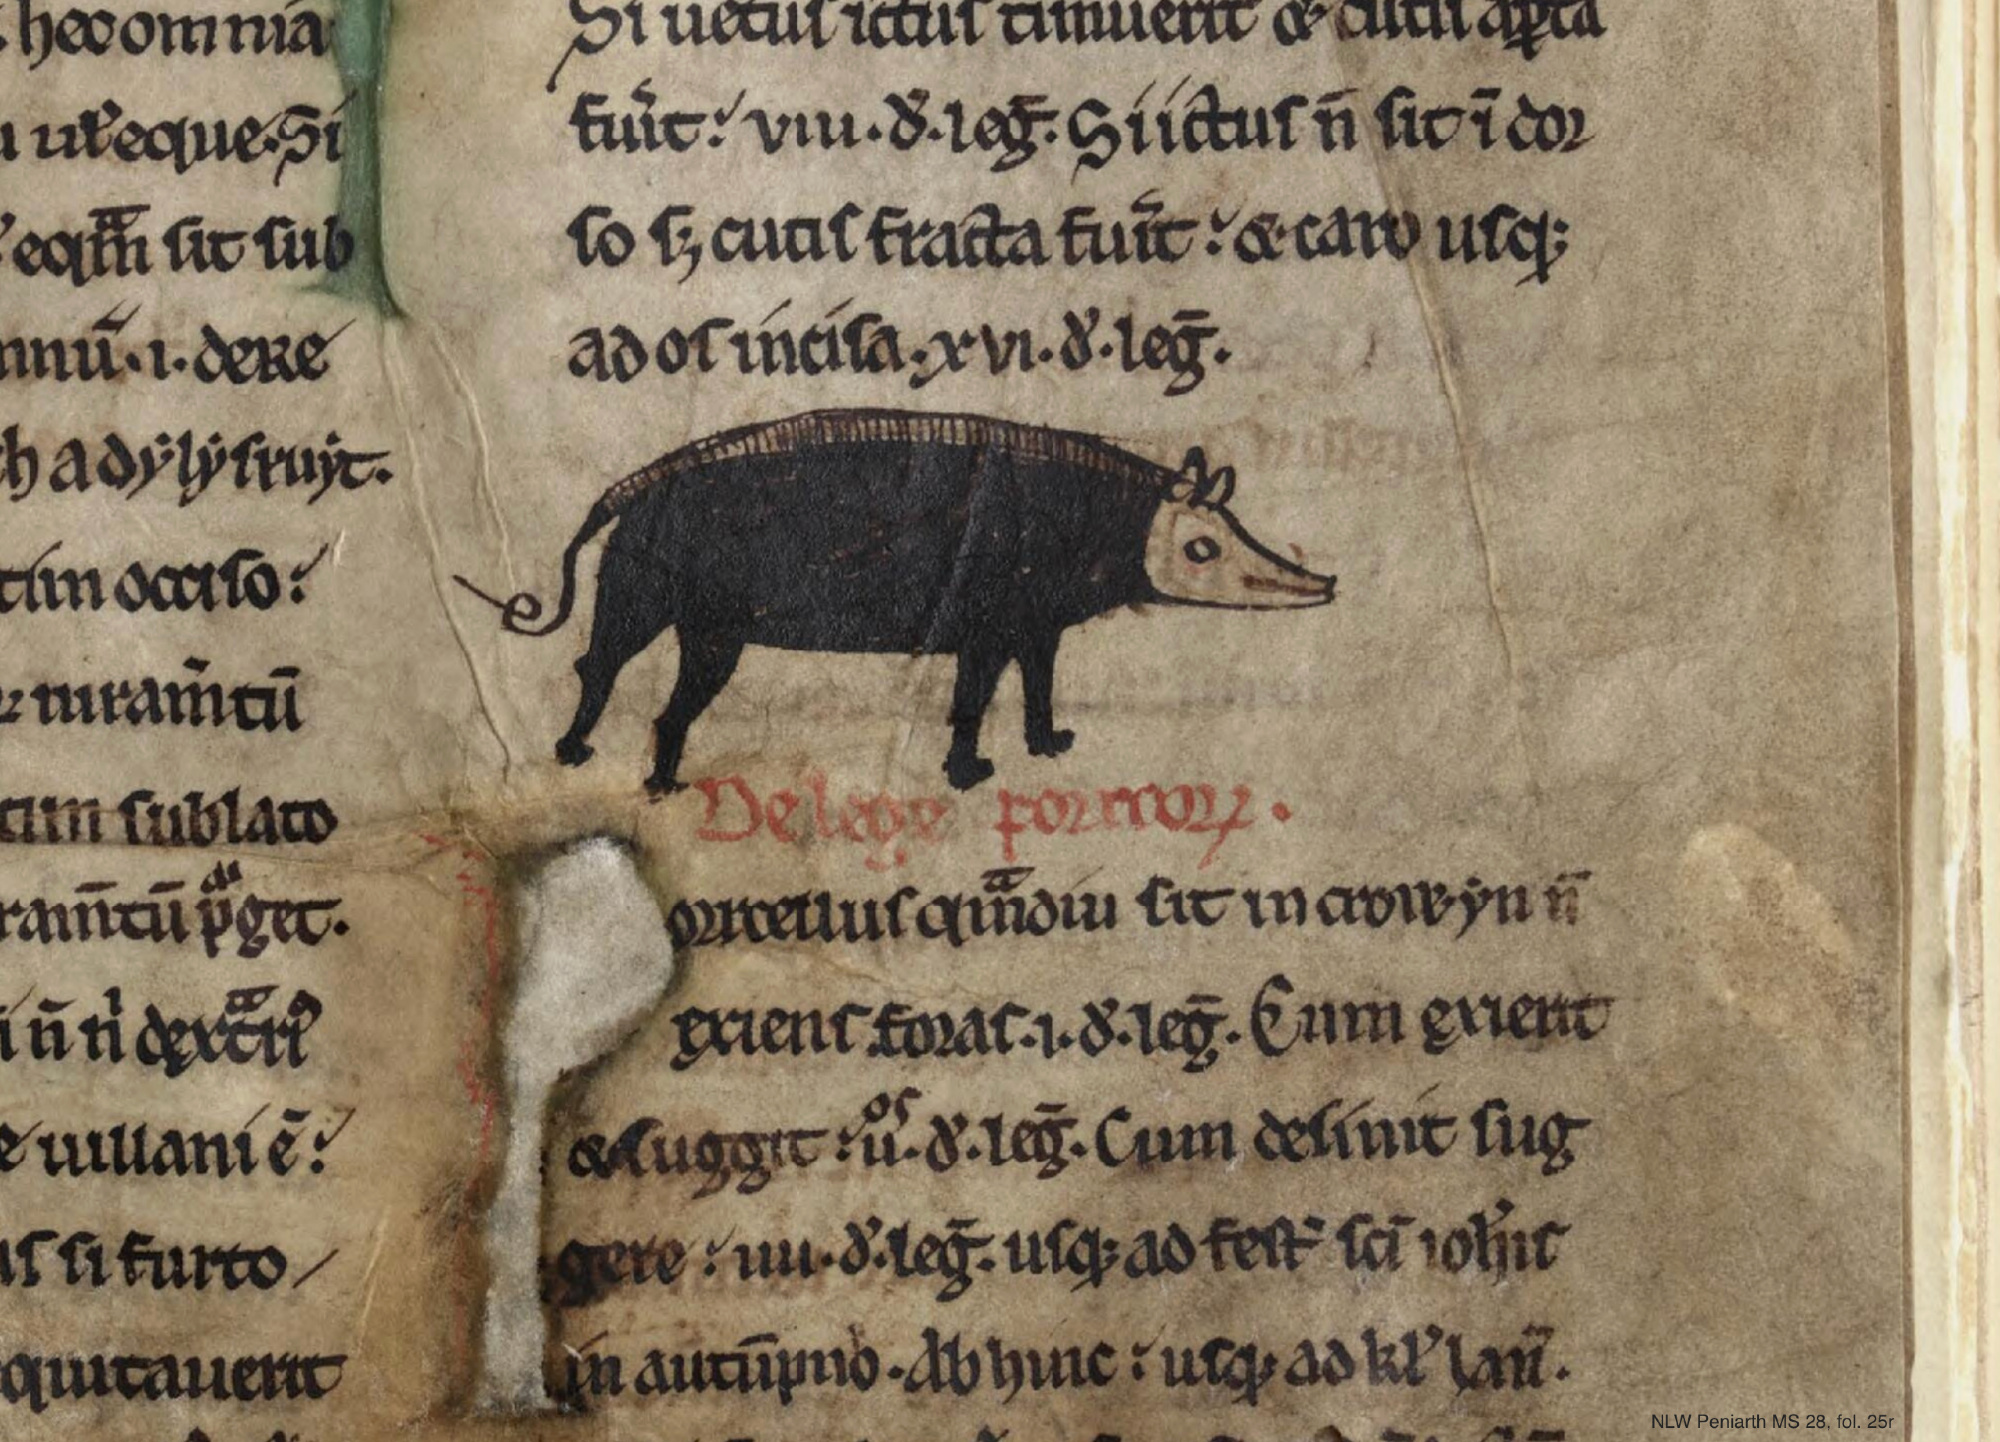 hec omnia
ut̃eque. Si
eqm̃ sit sub
nnũ. i. dere
h adẏlẏsruẏt.
tim occiso:
iuram̃tũ
tim sublato
ram̃tũ pͣget.
ñ ti dextri
uillani ẽ:
si furto /
quitauerit
Si uetus ictus timuerit & cutis apta
fuit̃: viii. d̓. leg̃. Si ictus ñ sit ĩ dor
so sꝫ cutis fracta fuit̃: & caro usqꝫ
ad os incisa. xvi. d̓. leg̃.
De lege porcorꝝ.
orcellus qmͣdiu sit in crowẏn ñ
exiens foras. i. d̓. leg̃. Cum exierit
& suggit: iiͦˢ. d̓. leg̃. Cum desinit sug
gere: iiii. d̓. leg̃. usqꝫ ad fest̃ sci̅ ioh̃is
in autũpno. Ab hinc: usqꝫ ad kl̓ ian̅.
NLW Peniarth MS 28, fol. 25r